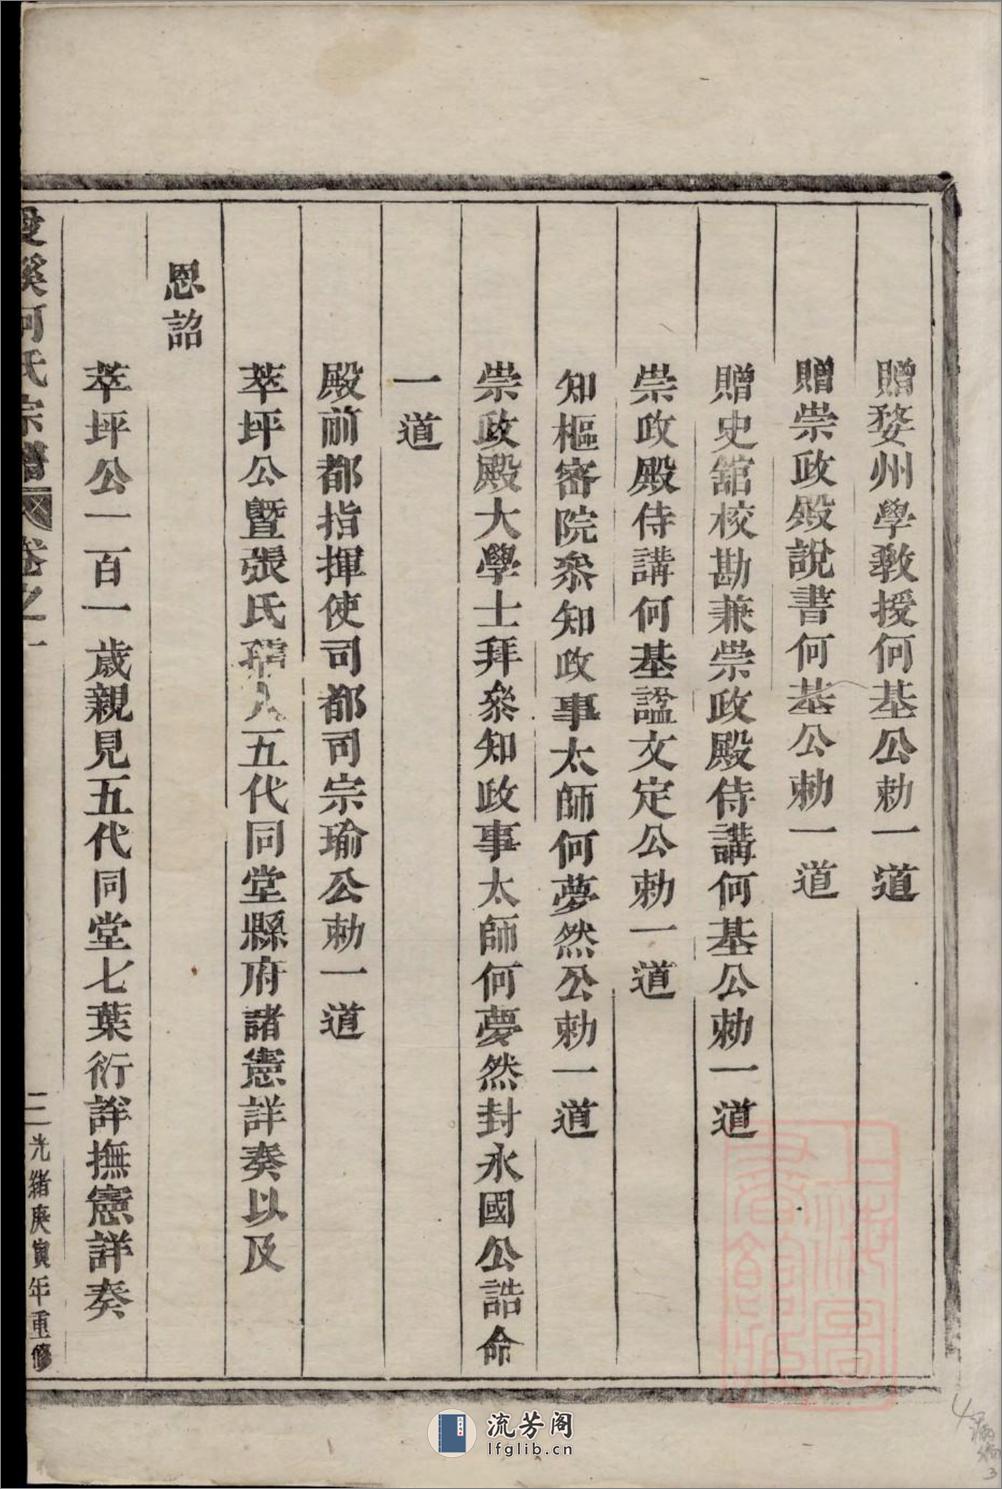 贈婺州學敎授何基公勅一道
贈崇政殿說書何基公勅一道
贈史舘校勘兼崇政殿侍講何基公勅一道
崇政殿侍講何基諡文定公勅一道
知樞密院叅知政事太師何夢然公勅一道
崇政殿大學士拜叅知政事太師何夢然封永國公誥命
一道
殿前都指揮使司都司宗瑜公勅一道
萃坪公曁張氏孺人五代同堂縣府諸憲詳奏以及
恩詔
萃坪公一百一歲親見五代同堂七葉衍詳撫憲詳奏
溪何氏宗譜 卷之一
三 光緒庚寅年重修
上海圖書館藏
流芳阁
lfglib.cn
4
3